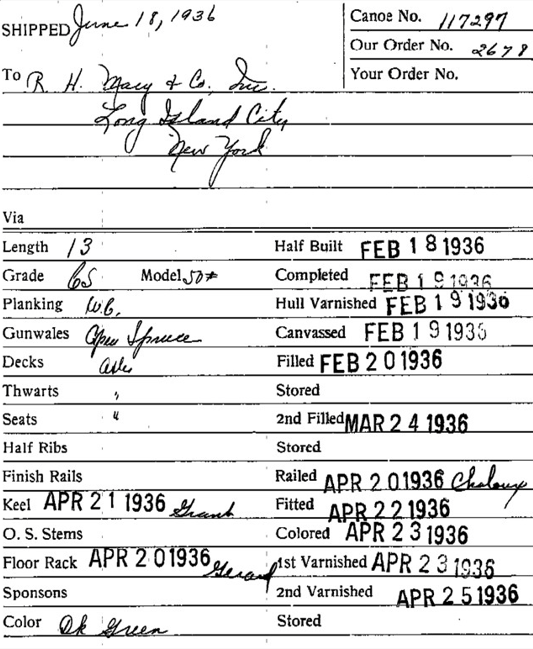 SHIPPED June 18, 1936
Canoe No. 117297
Our Order No. 2678
Your Order No.
To R. H. Macy & Co. Inc.
Long Island City
New York
Via
Length 13
Half Built FEB 18 1936
Grade CS Model 50#
Completed FEB 19 1936
Planking W.C.
Hull Varnished FEB 19 1936
Gunwales Open Spruce
Canvassed FEB 19 1936
Decks Ash
Filled FEB 20 1936
Thwarts "
Stored
Seats "
2nd Filled MAR 24 1936
Half Ribs
Stored
Finish Rails
Railed APR 20 1936
Keel APR 21 1936
Fitted APR 22 1936
O. S. Stems
Colored APR 23 1936
Floor Rack APR 20 1936
1st Varnished APR 23 1936
Sponsons
2nd Varnished APR 25 1936
Color Dk Green
Stored